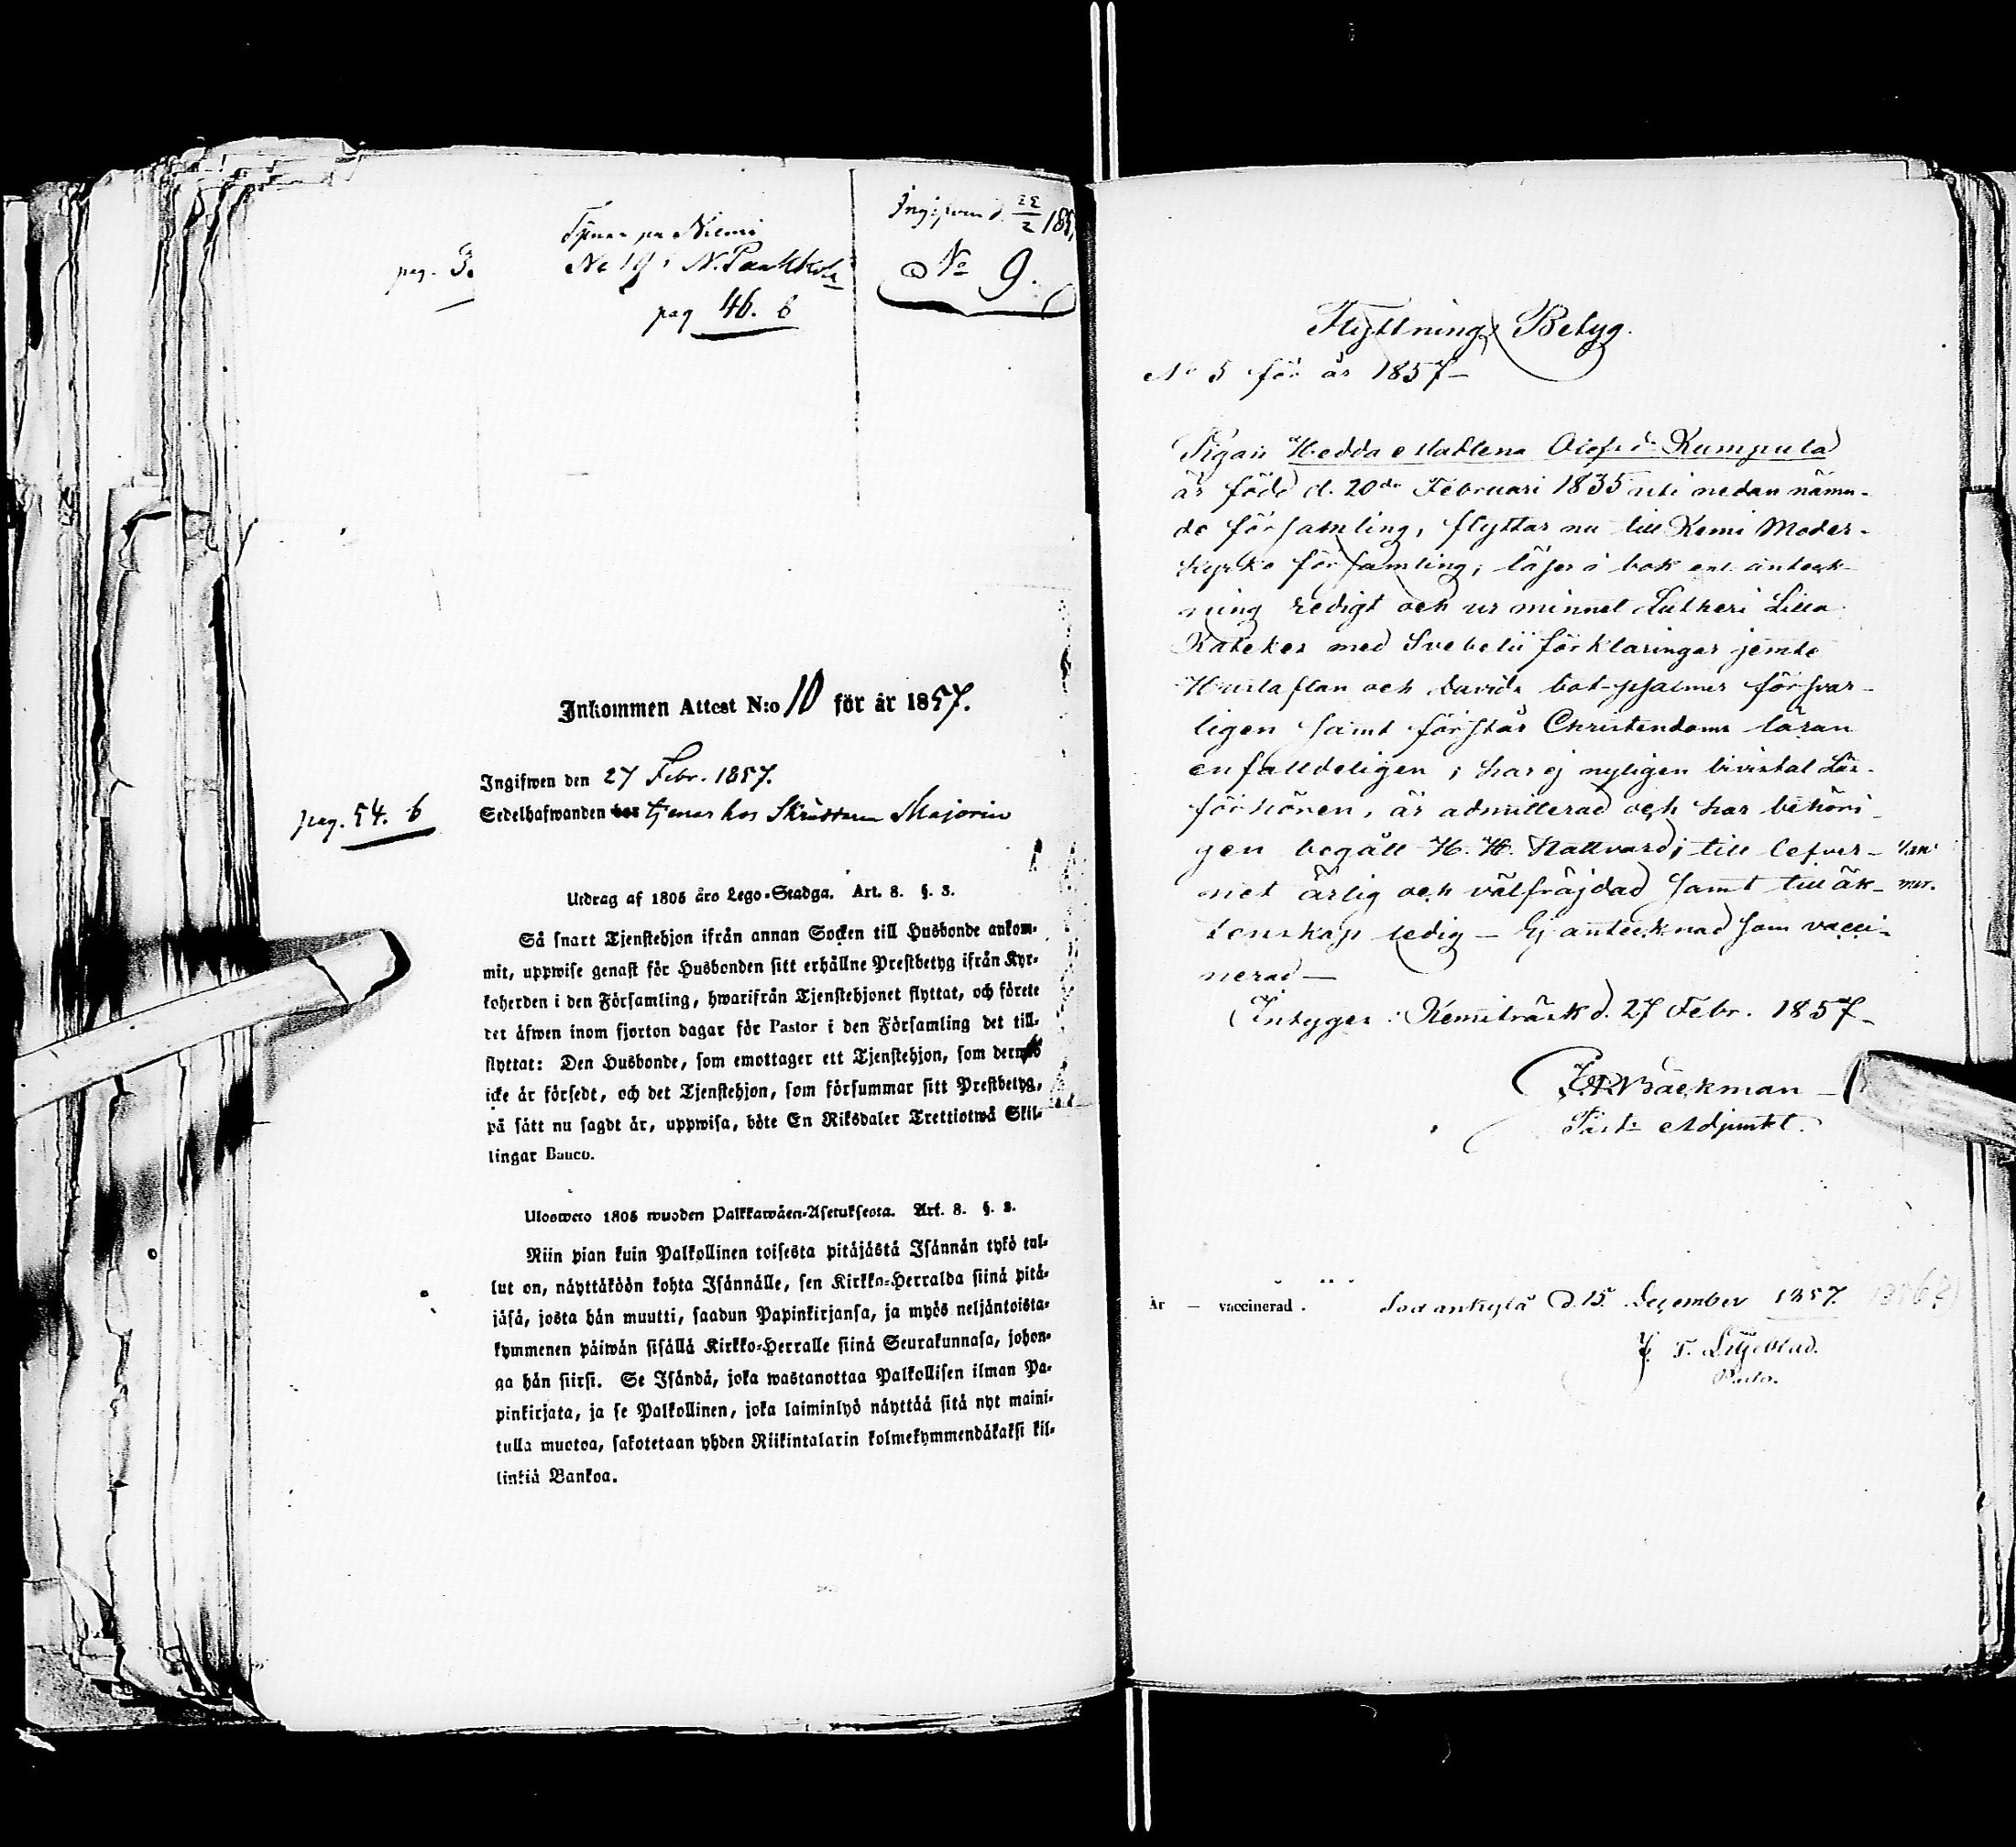 Ingifven d. 22/2 185
No 9.
på Niemi
No 19 i N. Paakkola
pag. 3.
pag 46. b
Inkommen Attest N:o 10 för år 1857.
Ingifwen den 27 Febr. 1857.
Sedelhafwanden bor tjenar hos Majorin
pag. 54. b
Utdrag af 1805 års Lego-Stadga. Art. 8. §. 3.
Så snart Tjenstehjon ifrån annan Socken till Husbonde ankom-
mit, uppwise genast för Husbonden sitt erhållne Prestbetyg ifrån Kyr-
koherden i den Församling, hwarifrån Tjenstehjonet flyttat, och förete
det äfwen inom fjorton dagar för Pastor i den Församling det till-
flyttat: Den Husbonde, som emottager ett Tjenstehjon, som dermed
icke är försedt, och det Tjenstehjon, som försummar sitt Prestbetyg,
på sätt nu sagdt är, uppwisa, böte En Riksdaler Trettiotwå Skil-
lingar Banco.
Ulosweto 1805 wuoden Palkkawäen-Asetuksesta. Art. 8. §. 3.
Niin pian kuin Palkollinen toisesta pitäjästä Isännän tykö tul-
lut on, näyttäköön kohta Isännälle, sen Kirkko-Herralda siinä pitä-
jäsä, josta hän muutti, saadun Papinkirjansa, ja myös neljäntoista-
kymmenen päiwän sisällä Kirkko-Herralle siinä Seurakunnasa, johon-
ga hän siirsi. Se Isändä, joka wastanottaa Palkollisen ilman Pa-
pinkirjata, ja se Palkollinen, joka laiminlyö näyttää sitä nyt maini-
tulla muotoa, sakotetaan yhden Riikintalarin kolmekymmendäkaksi kil-
linkiä Bankoa.
Flyttnings Betyg.
No 5 för år 1857-
Pigan Hedda Madlena Olofsdr Kumpula
är född d. 20de Februari 1835 uti nedan nämn-
de församling, flyttar nu till Kemi Moder-
kyrko församling; läser i bok enl. anteck-
ning redigt och ur minnet Lutheri Lilla
Kateches med Svebelii förklaringar jemte
Hustaflan och Davids bot-psalmer försvar-
ligen samt förstår Christendoms läran
enfalldeligen; har ej nyligen bivistat Läs-
förhören, är admitterad och har behöri-
gen begått H. H. Nattvard; till lefver-
net ärlig och välfräjdad samt till äk-
tenskap ledig - Ej antecknad som vacci-
nerad -
Intygar: Kemiträsk d. 27 Febr. 1857-
Bäckman -
Past: Adjunkt.
Är - vaccinerad. Sodankylä d. 15 December 1857.
J. F. Liljeblad.
Pastor.